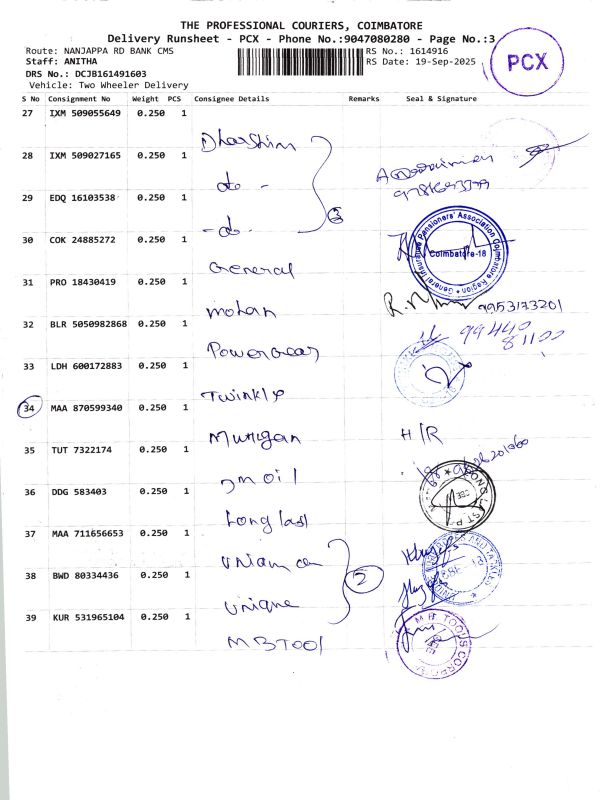 THE PROFESSIONAL COURIERS, COIMBATORE
Delivery Runsheet - PCX - Phone No.:9047080280 - Page No.:3
Route: NANJAPPA RD BANK CMS
RS No.: 1614916
Staff: ANITHA
RS Date: 19-Sep-2025
DRS No.: DCJB161491603
Vehicle: Two Wheeler Delivery
PCX
S No Consignment No Weight PCS Consignee Details Remarks Seal & Signature
27 IXM 509055649 0.250 1
Dharshini
28 IXM 509027165 0.250 1
do -
29 EDQ 16103538 0.250 1
- do - 3
30 COK 24885272 0.250 1
General
General Insurance Pensioners' Association Coimbatore Region
Coimbatore-18
31 PRO 18430419 0.250 1
mohan
9953173201
32 BLR 5050982868 0.250 1
Powergear
99440
81100
33 LDH 600172883 0.250 1
Twinkle
34 MAA 870599340 0.250 1
Murugan H/R
35 TUT 7322174 0.250 1
36 DDG 583403 0.250 1
Longlast
37 MAA 711656653 0.250 1
2
38 BWD 80334436 0.250 1
unique
39 KUR 531965104 0.250 1
MBTOOL